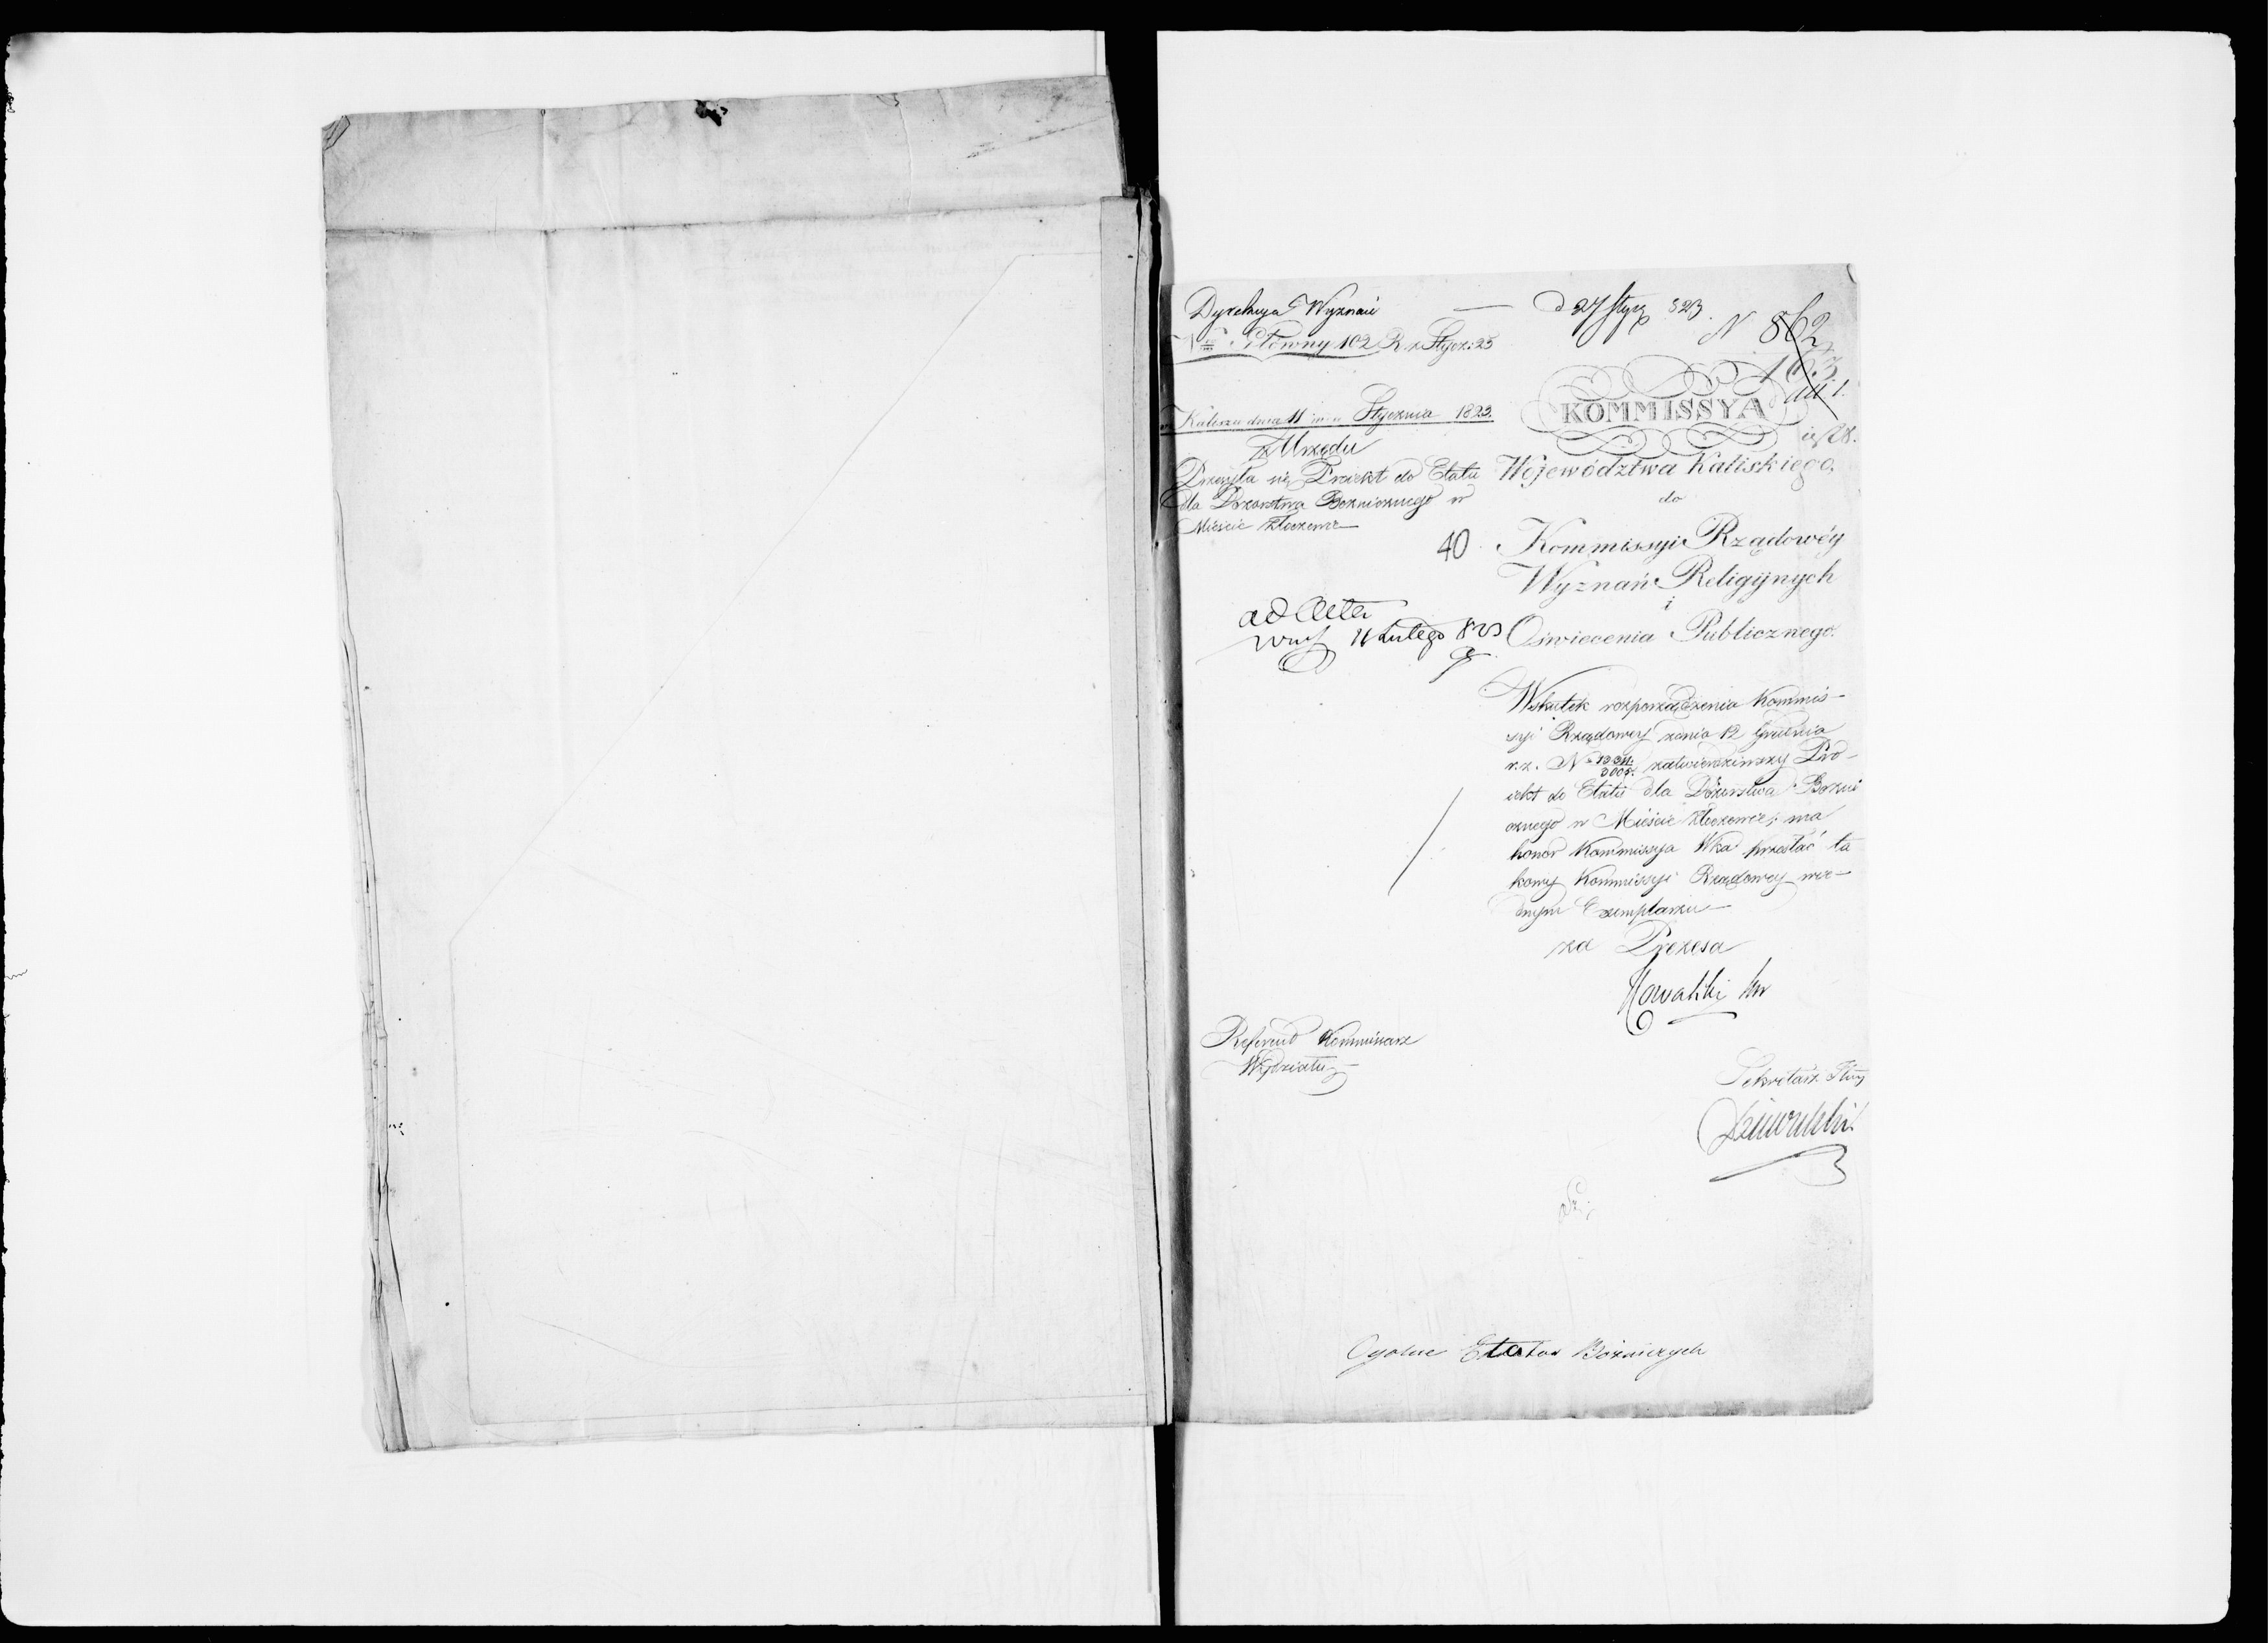 Dyrekcya Wyznań — d 27 Stycz 823.
N 862
Nro Główny 102 R. z Stycz: 25
163
ad 1.
w Kaliszu dnia 11 m-a Stycznia 1823.
KOMMISSYA
Z Urzędu
Przesyła się Proiekt do Etatu
dla Dozorstwa Boznicznego w
Mieście Złoczewie
Województwa Kaliskiego,
do
40
Kommissyi Rządowéy
Wyznań Religiynych
i
Oświecenia Publicznego.
ad Acta
11 Lutego 823
Wskutek rozporządzenia Kommis-
syi Rządowey zdnia 12 Grudnia
r.z. N zatwierdziwszy Pro-
iekt do Etatu dla Dozorstwa Bozni
cznego w Mieście Złoczewie; ma
honor Kommissya Wka przesłać ta
kowy Kommissyi Rządowey wie-
dnym Exemplarzu—
za Prezesa
Kowalski
Referend Kommissarz
Wydziału
Sekretarz Jlny
Ogolne Etatów Bóżniczych